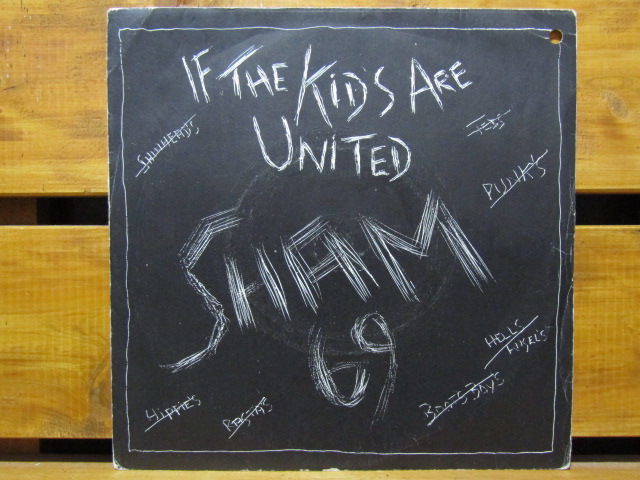 IF THE KIDS ARE
UNITED
SKINHEADS
TEDS
PUNKS
SHAM
69
HELLS
ANGEL'S
HIPPIE'S
RASTA'S